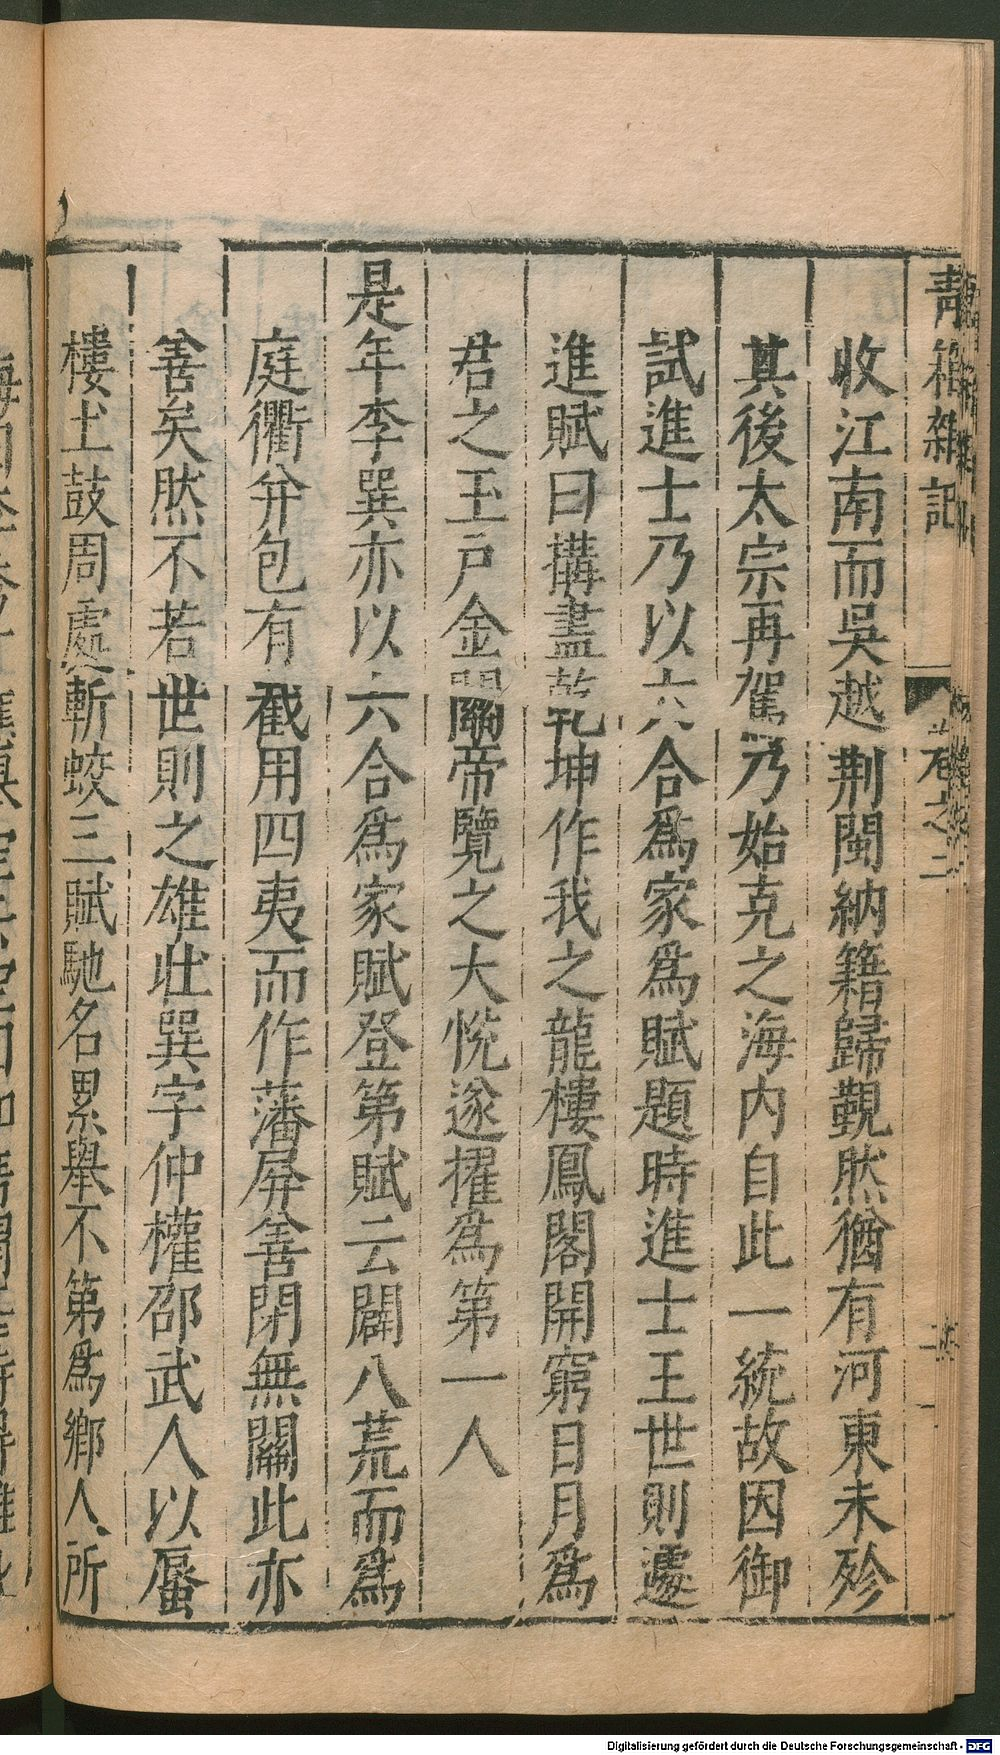 青箱雜記
卷之二
收江南而吳越荆閩納籍歸覲然猶有河東未殄
其後太宗再駕乃始克之海内自此一統故因御
試進士乃以六合爲家爲賦題時進士王世則遽
進賦曰搆盡乾坤作我之龍樓鳳閣開窮日月爲
君之玉戸金關帝覽之大悦遂擢爲第一人
是年李巽亦以六合爲家賦登第賦云闢八荒而爲
庭衢并包有截用四夷而作藩屏善閉無關此亦
善矣然不若世則之雄壯巽字仲權邵武人以蜃
樓土鼓周處斬蛟三賦馳名累舉不第爲鄉人所
Digitalisierung gefördert durch die Deutsche Forschungsgemeinschaft - DFG